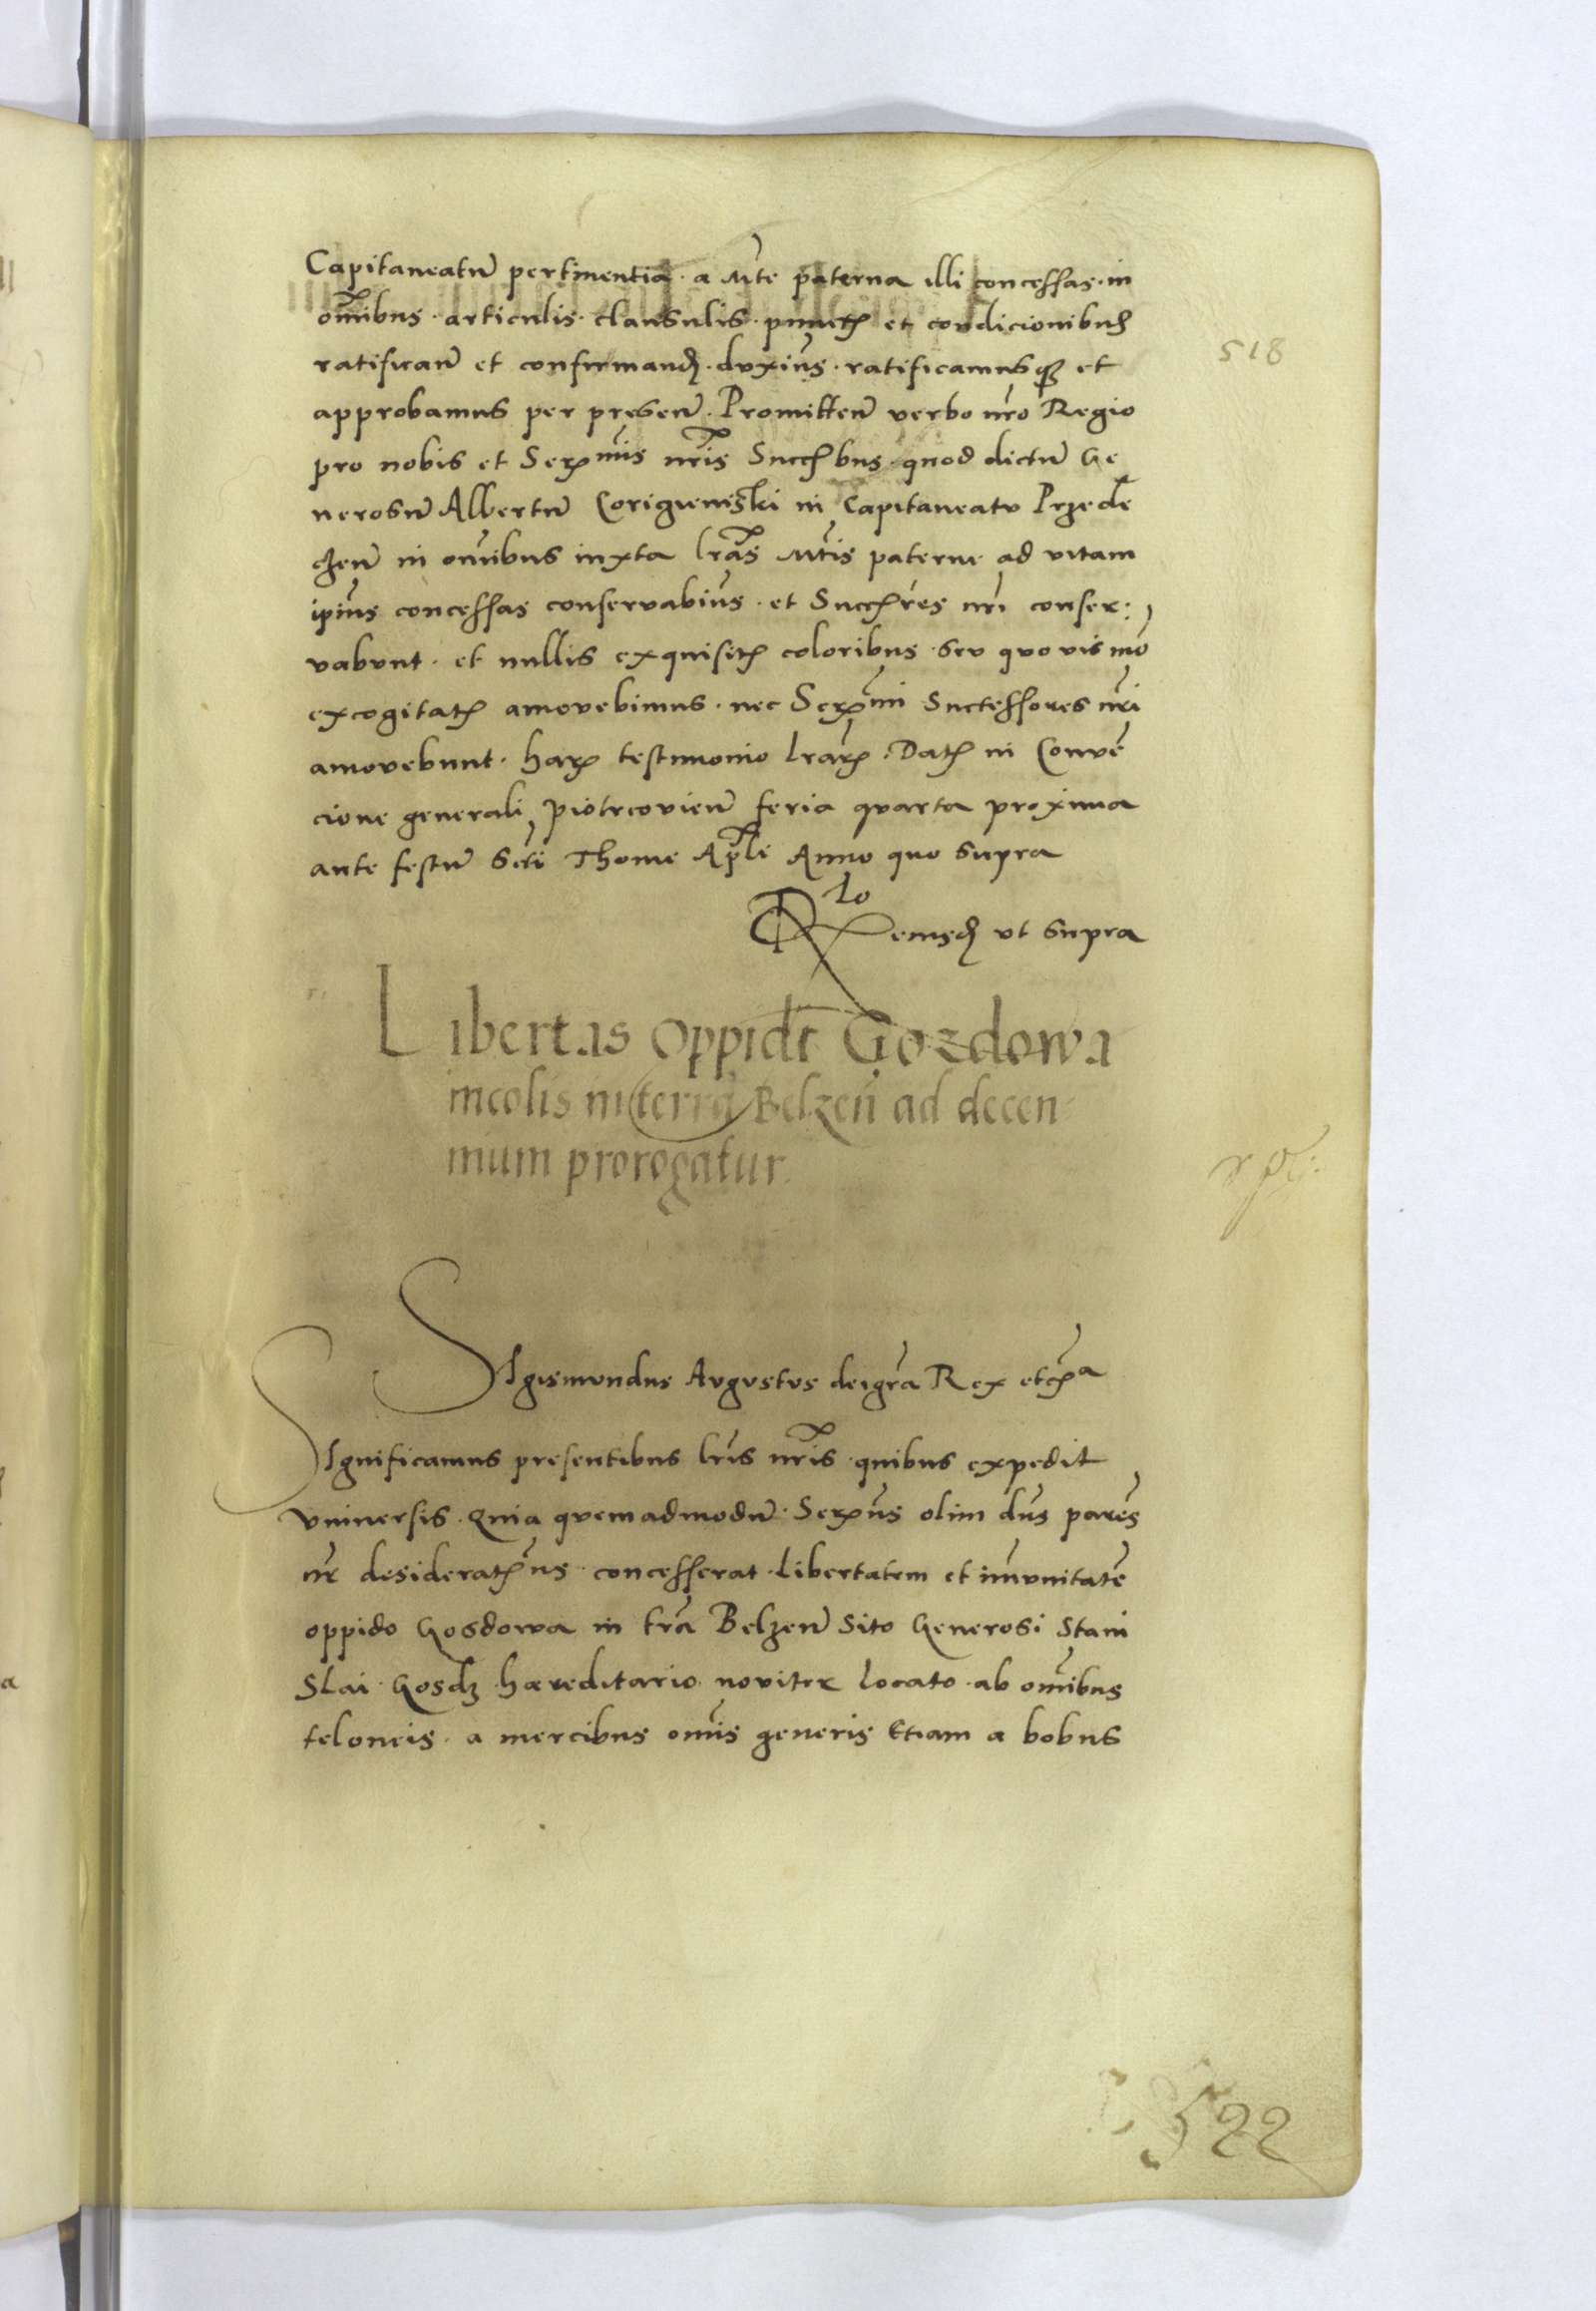 Capitaneatu᷑ pertinentia · a Mt̃e paterna illi concessas · in
om̃ibus · articulis · clausulis · punctꝭ et condicionibus
518
ratifican᷑ et confirmand᷑ · duxim᷑s · ratificamusqꝫ et
approbamus per presen᷑ · Promitten᷑ verbo nr̃o Regio
pro nobis et Serꝫmis nr̃is Succ᷑bus · quod dictu᷑ Ge
nerosu᷑ Albertu᷑ in Capitaneatu Przede
czen᷑ in om̃ibus iuxta lr̃as Mt̃is paterne ad vitam
ip̃ius concessas conservabim᷑s · et Succ᷑res nr̃i conser:
vabunt · et nullis exquisitꝭ coloribus · seu quovis mõ
excogitatꝭ amovebimus · nec Serꝫmi Successores nr̃i
amovebunt · harꝫ testimonio lr̃arꝫ · Datꝭ in Conve᷑
cione generali Piotrcovien᷑ feria quarta proxima
ante festu᷑ Scti Thome Ap̃li Anno quo supra
Rlo eiusd᷑ ut supra
Libertas oppidi Gozdowa
incolis in terra Belzen᷑ ad decen
nium prorogatur.
Sigismundus Augustus dei gr̃a Rex etc᷑a
Significamus presentibus lr̃is nr̃is · quibus expedit
universis · Quia quemadmodu᷑ · Serꝫm᷑s olim dn᷑s parẽs
nr̃ desideratꝭm᷑s · concesserat · libertatem et im̃unitatẽ
oppido Gosdowa in tr̃a Belzen᷑ sito Generosi Stani
slai · Gosdz · hæreditario · noviter locato · ab om̃ibus
teloneis · a mercibus om̃is generis Etiam a bobus
522